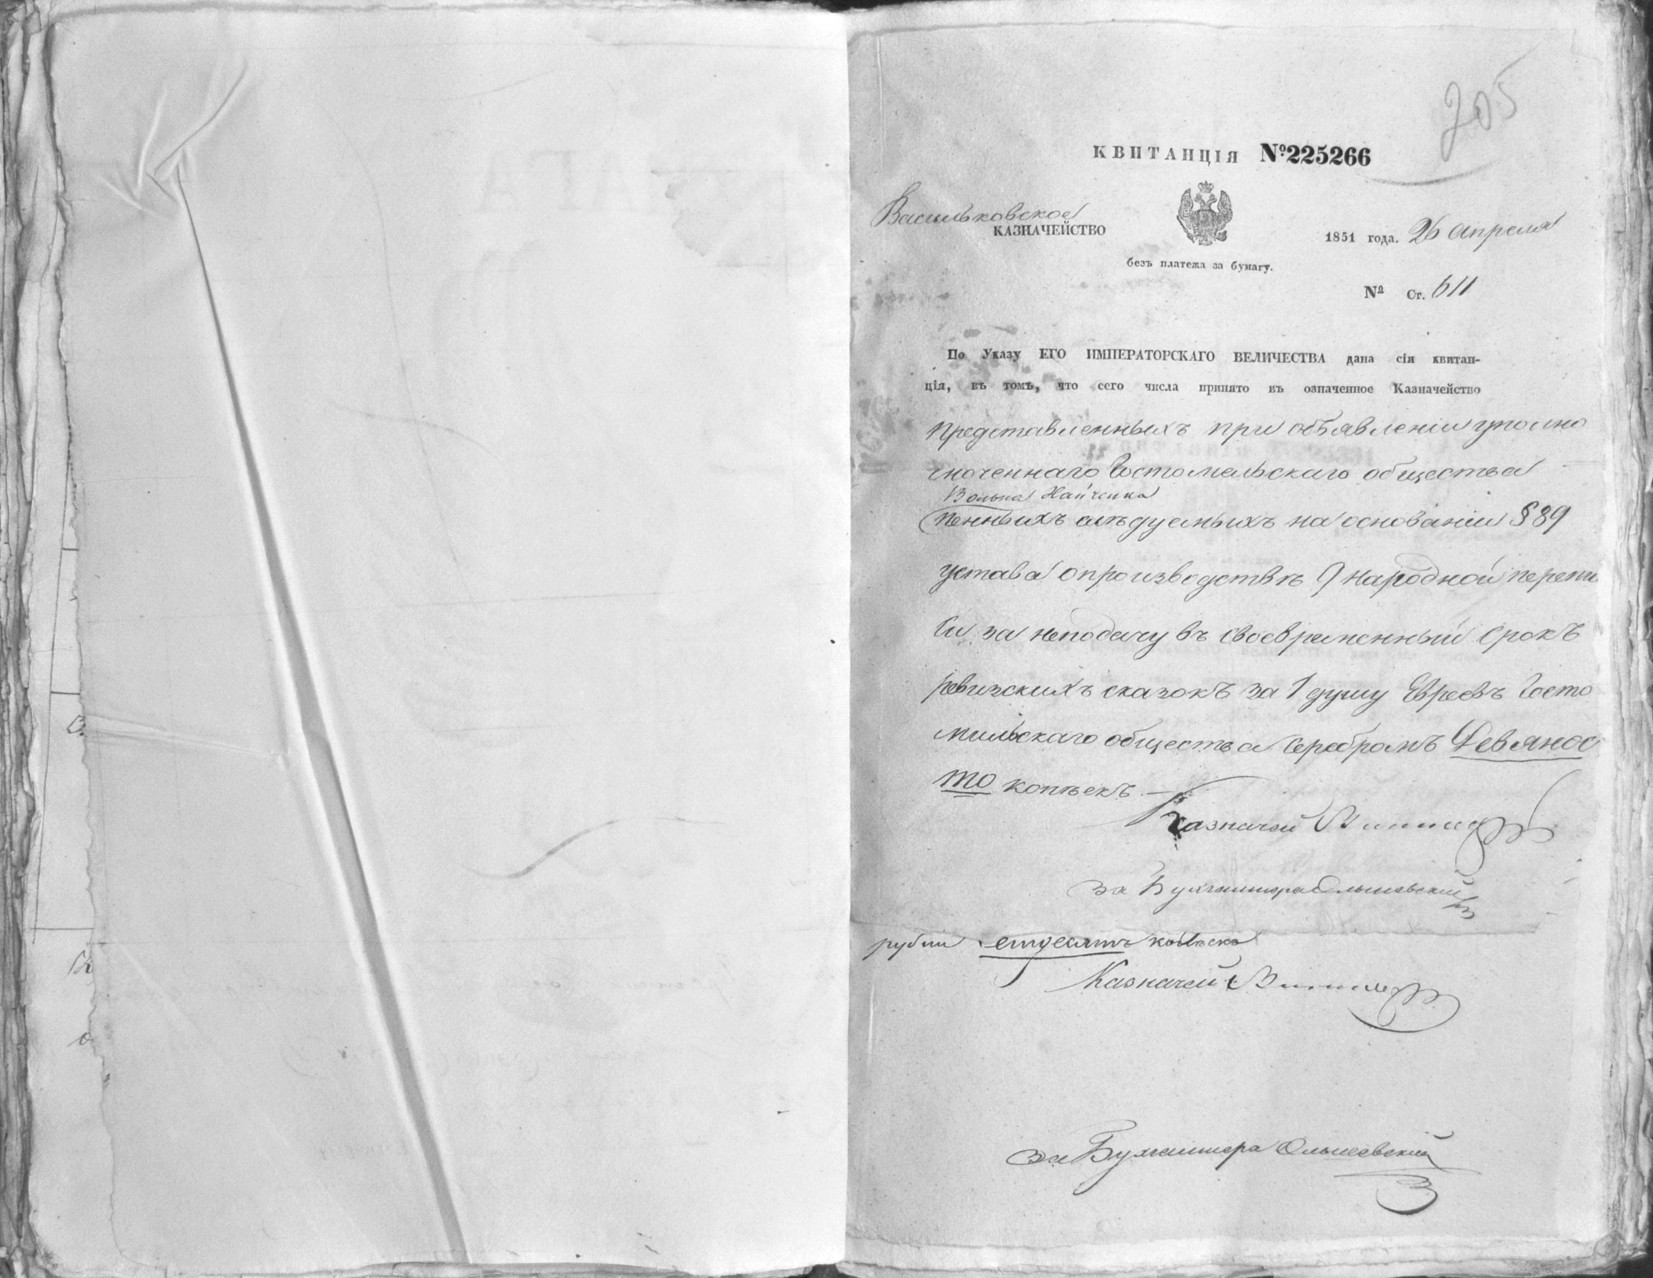 205
КВИТАНЦІЯ №225266
Васильковское
КАЗНАЧЕЙСТВО
1851 года. 26 апреля
безъ платежа за бумагу.
№ Ст. 611
По Указу ЕГО ИМПЕРАТОРСКАГО ВЕЛИЧЕСТВА дана сія квитан-
ція, въ томъ, что сего числа принято въ означенное Казначейство
представленныхъ при объявленіи уполно
моченнаго Гостомельскаго общества
Волька
пенныхъ слѣдуемыхъ на основаніи § 89
устава о производствѣ 9 народной перепи
си за неподачу въ своевременный срокъ
ревизскихъ сказокъ за 1 душу Евреевъ Госто
мильскаго общества серебромъ Девянос
то копѣекъ.
Казначей
за Бухгалтера Ольшевскій
рубли копѣекъ
Казначей
за Бухгалтера Ольшевскій